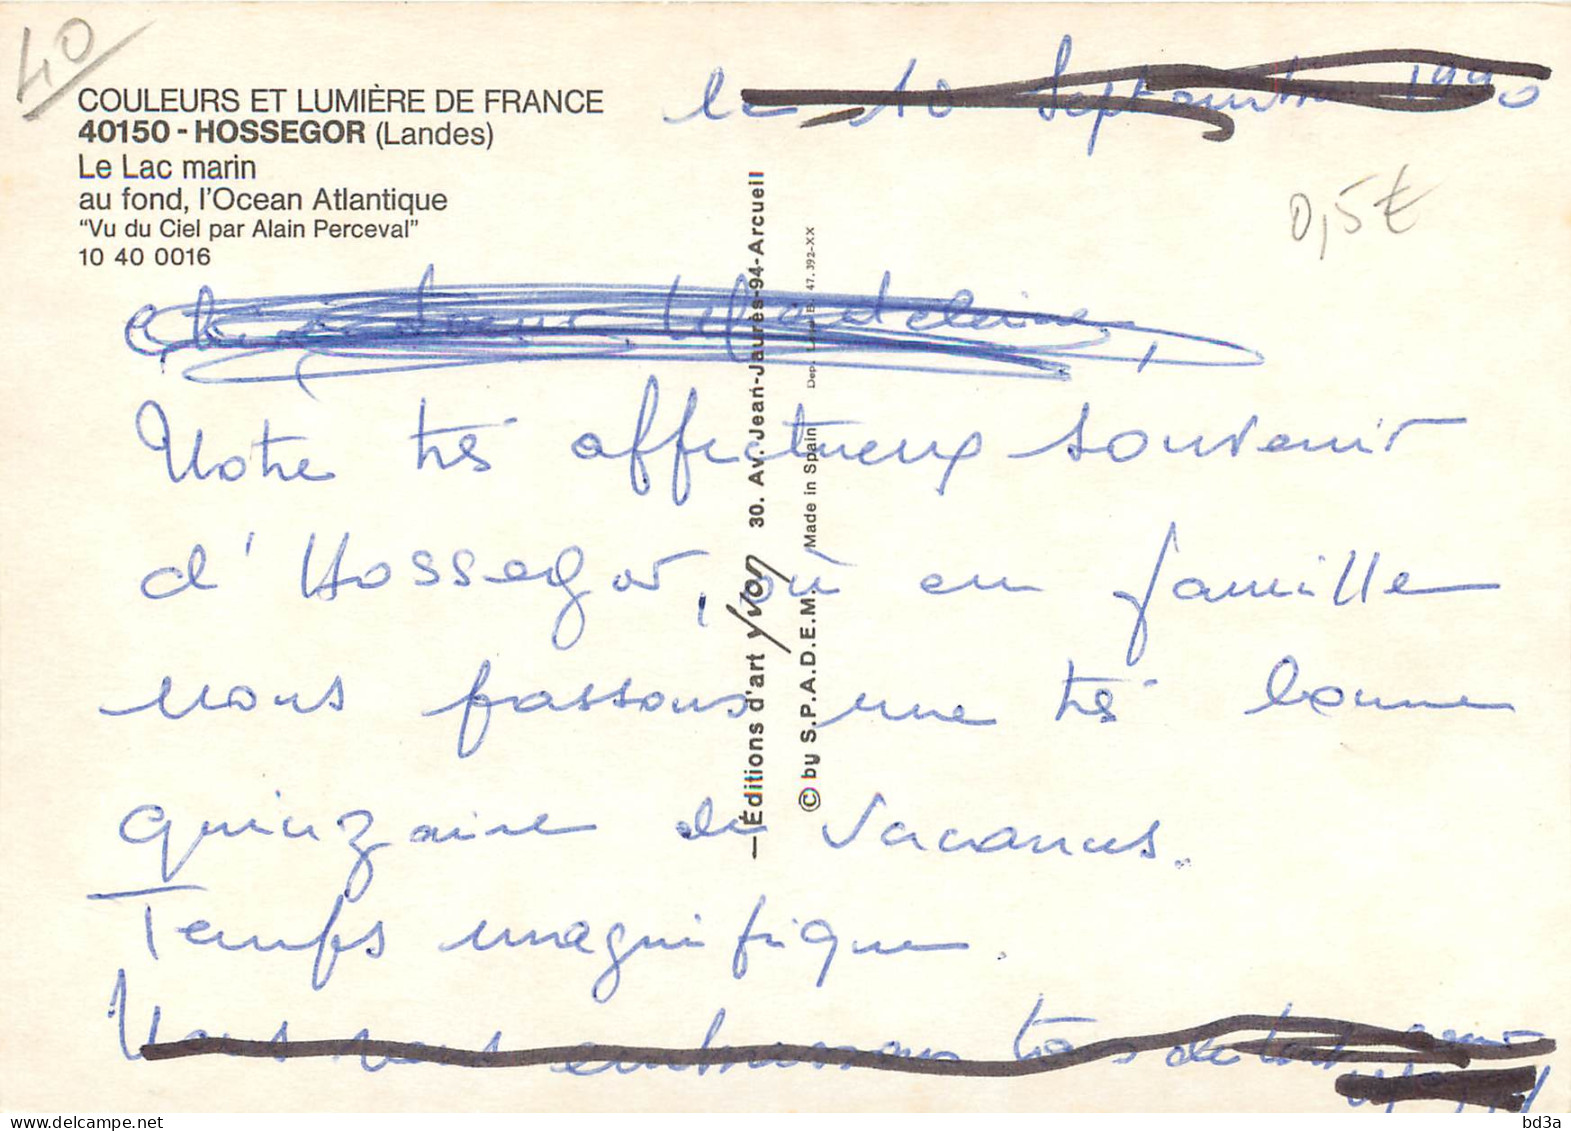 40
COULEURS ET LUMIÈRE DE FRANCE
40150 - HOSSEGOR (Landes)
Le Lac marin
au fond, l'Ocean Atlantique
"Vu du Ciel par Alain Perceval"
10 40 0016
le 10 Septembre 1990
0,5€
—Éditions d'art yvon 30. Av. Jean-Jaurès-94-Arcueil
© by S.P.A.D.E.M. Made in Spain Dep. 47.392-XX
Madeleine,
Notre très affectueux souvenir
d'Hossegor, où en famille
nous passons une très bonne
quinzaine de vacances.
Temps magnifique.
Nous vous embrassons très
bd3a